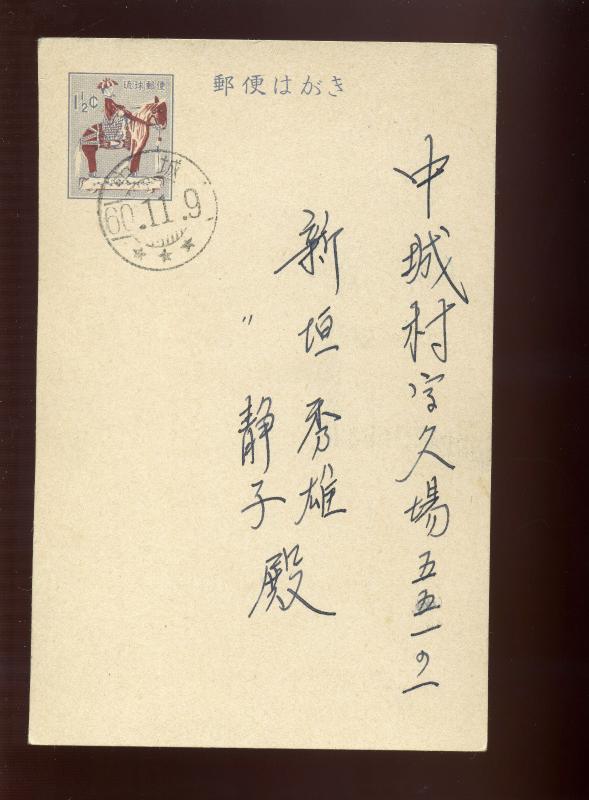 郵便はがき
琉球郵便
1½¢
城
60.11.9
中城村字久場五五一の一
新垣秀雄
〃静子殿